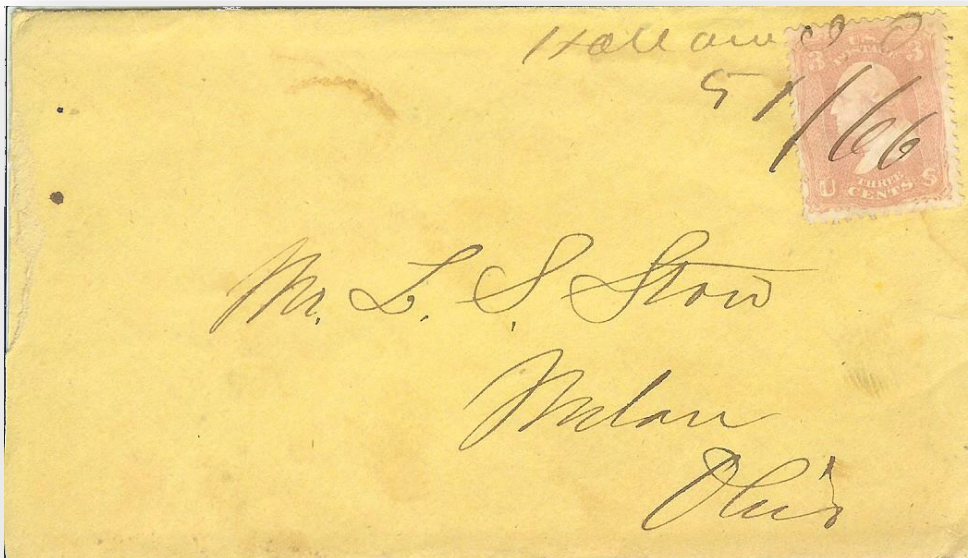 Holland O
5 1/66
U.S. POSTAGE
3 3
U THREE CENTS S
Mr. L. S. Stow
Milan
Ohio